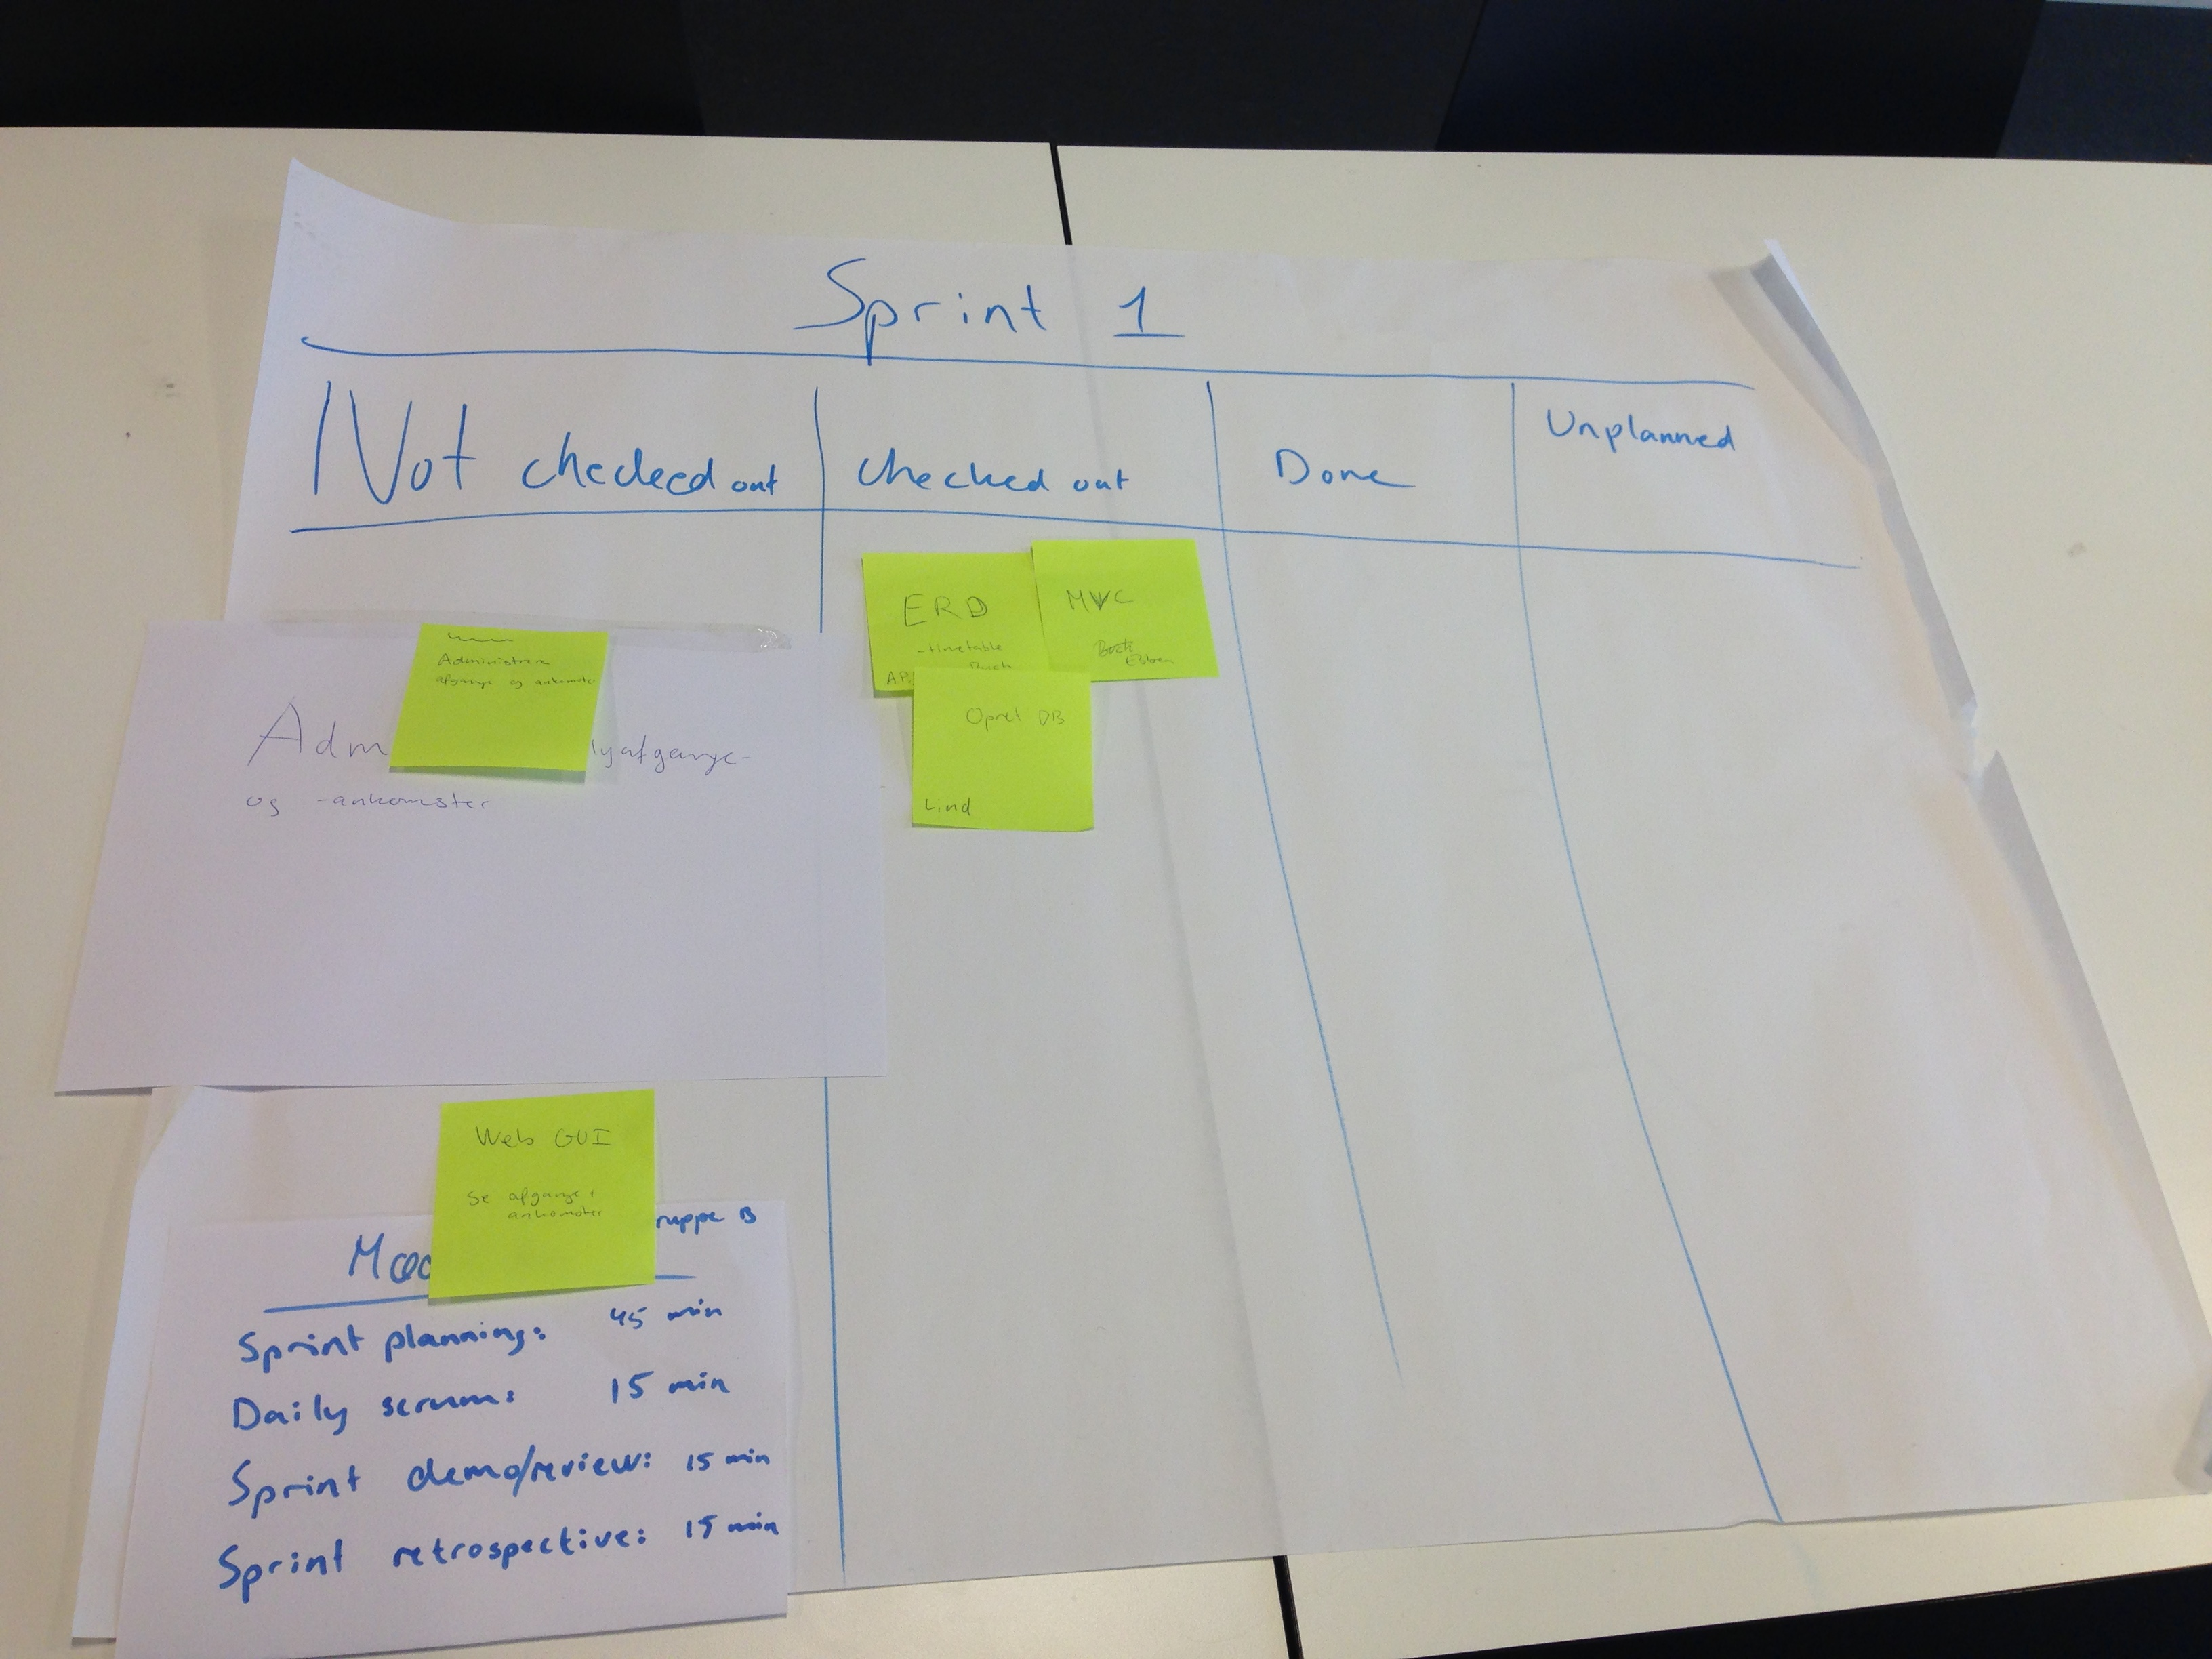 Sprint 1
Not checked out
Checked out
Done
Unplanned
Administrere
afgange og ankomster
Adm
lyafgange-
og -ankomster
ERD
-timetable
AP
MVC
Ebben
Opret DB
Lind
Web GUI
Se afgange +
ankomster
ruppe B
Mød
Sprint planning: 45 min
Daily scrum: 15 min
Sprint demo/review: 15 min
Sprint retrospective: 15 min